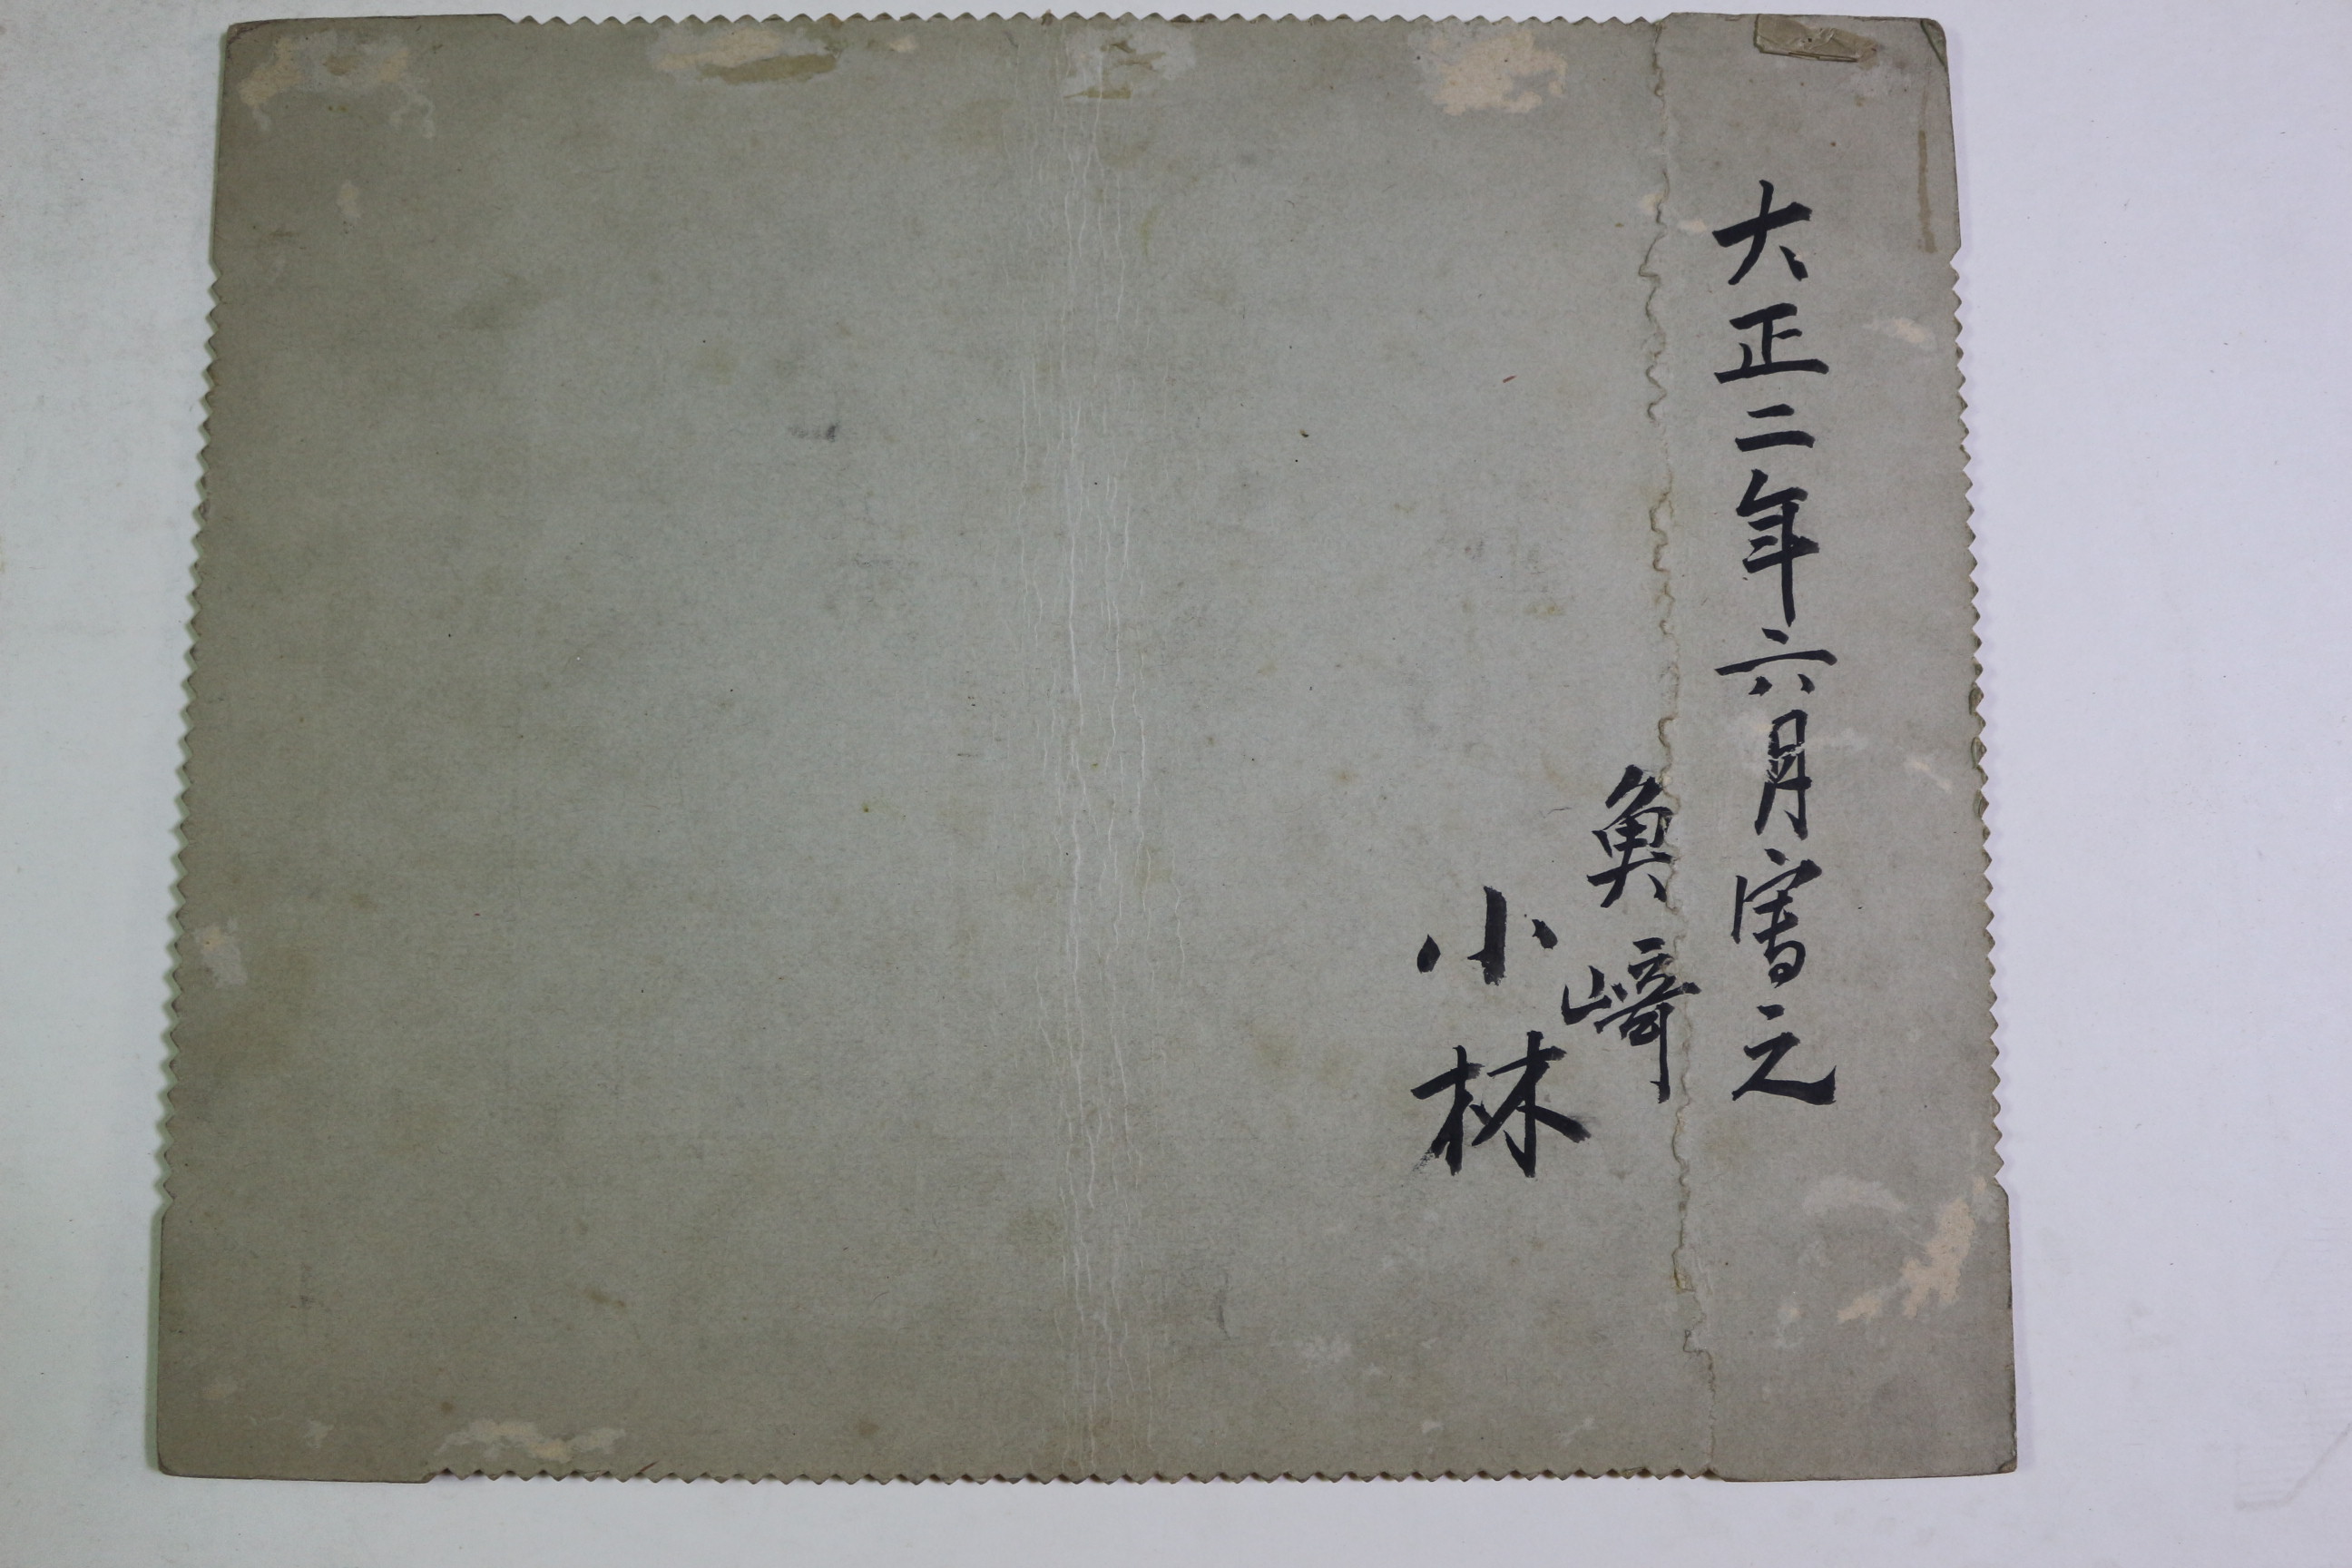 大正二年六月寫之
魚﨑
小林